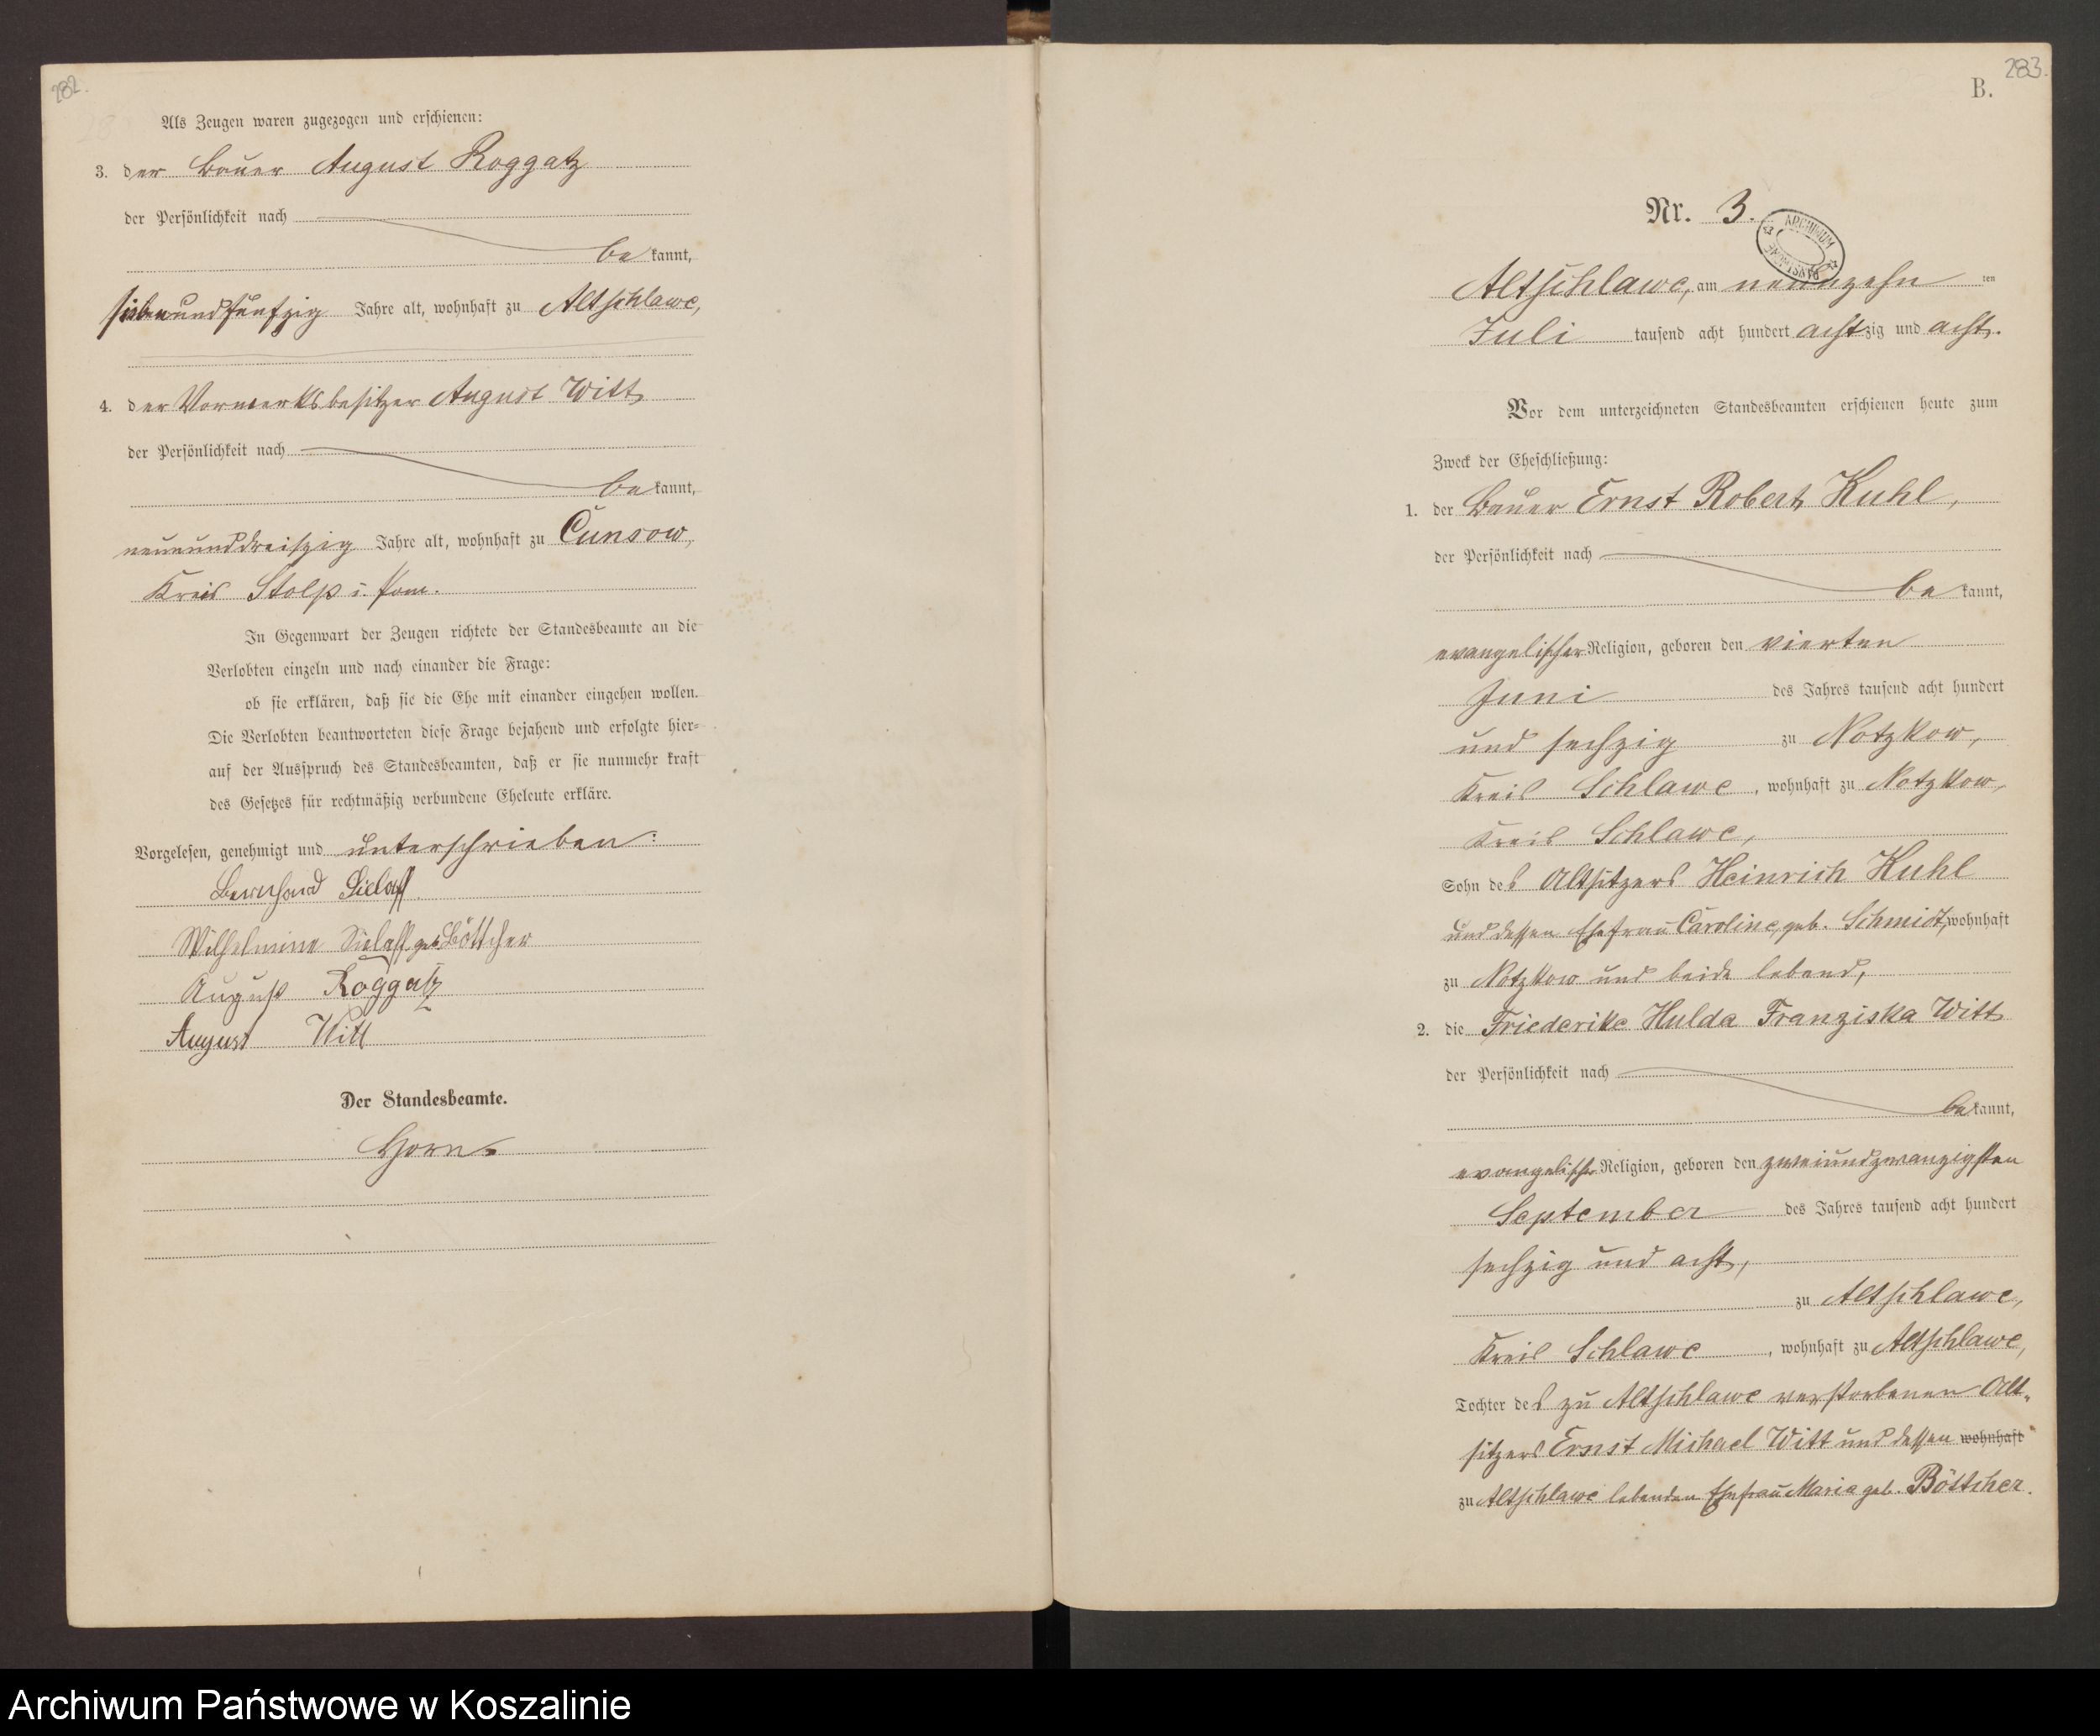 282.
Als Zeugen waren zugezogen und erschienen:
3. der Bauer August Roggatz
der Persönlichkeit nach
be kannt,
siebenundfünfzig Jahre alt, wohnhaft zu Altschlawe,
4. der Vorwerksbesitzer August Witt
der Persönlichkeit nach
be kannt,
neununddreißig Jahre alt, wohnhaft zu Cunsow,
Kreis Stolp i. Pom.
In Gegenwart der Zeugen richtete der Standesbeamte an die
Verlobten einzeln und nach einander die Frage:
ob sie erklären, daß sie die Ehe mit einander eingehen wollen.
Die Verlobten beantworteten diese Frage bejahend und erfolgte hier-
auf der Ausspruch des Standesbeamten, daß er sie nunmehr kraft
des Gesetzes für rechtmäßig verbundene Eheleute erkläre.
Vorgelesen, genehmigt und unterschrieben:
Bernhard Sielaff.
Wilhelmine Sielaff geb. Böttcher
August Roggatz
August Witt
Der Standesbeamte.
Horn.
283.
B.
Nr. 3.
ARCHIWUM PAŃSTWOWE
Altschlawe, am neunzehn ten
Juli tausend acht hundert achtzig und acht.
Vor dem unterzeichneten Standesbeamten erschienen heute zum
Zweck der Eheschließung:
1. der Bauer Ernst Robert Kuhl,
der Persönlichkeit nach
be kannt,
evangelischer Religion, geboren den vierten
Juni des Jahres tausend acht hundert
und sechzig zu Notzkow,
Kreis Schlawe, wohnhaft zu Notzkow,
Kreis Schlawe,
Sohn des Altsitzers Heinrich Kuhl
und dessen Ehefrau Caroline, geb. Schmidt, wohnhaft
zu Notzkow und beide lebend,
2. die Friederike Hulda Franziska Witt
der Persönlichkeit nach
be kannt,
evangelischer Religion, geboren den zweiundzwanzigsten
September des Jahres tausend acht hundert
sechzig und acht,
zu Altschlawe,
Kreis Schlawe, wohnhaft zu Altschlawe,
Tochter des zu Altschlawe verstorbenen Alt-
sitzers Ernst Michael Witt und dessen wohnhaft
zu Altschlawe lebenden Ehefrau Maria geb. Böttcher.
Archiwum Państwowe w Koszalinie